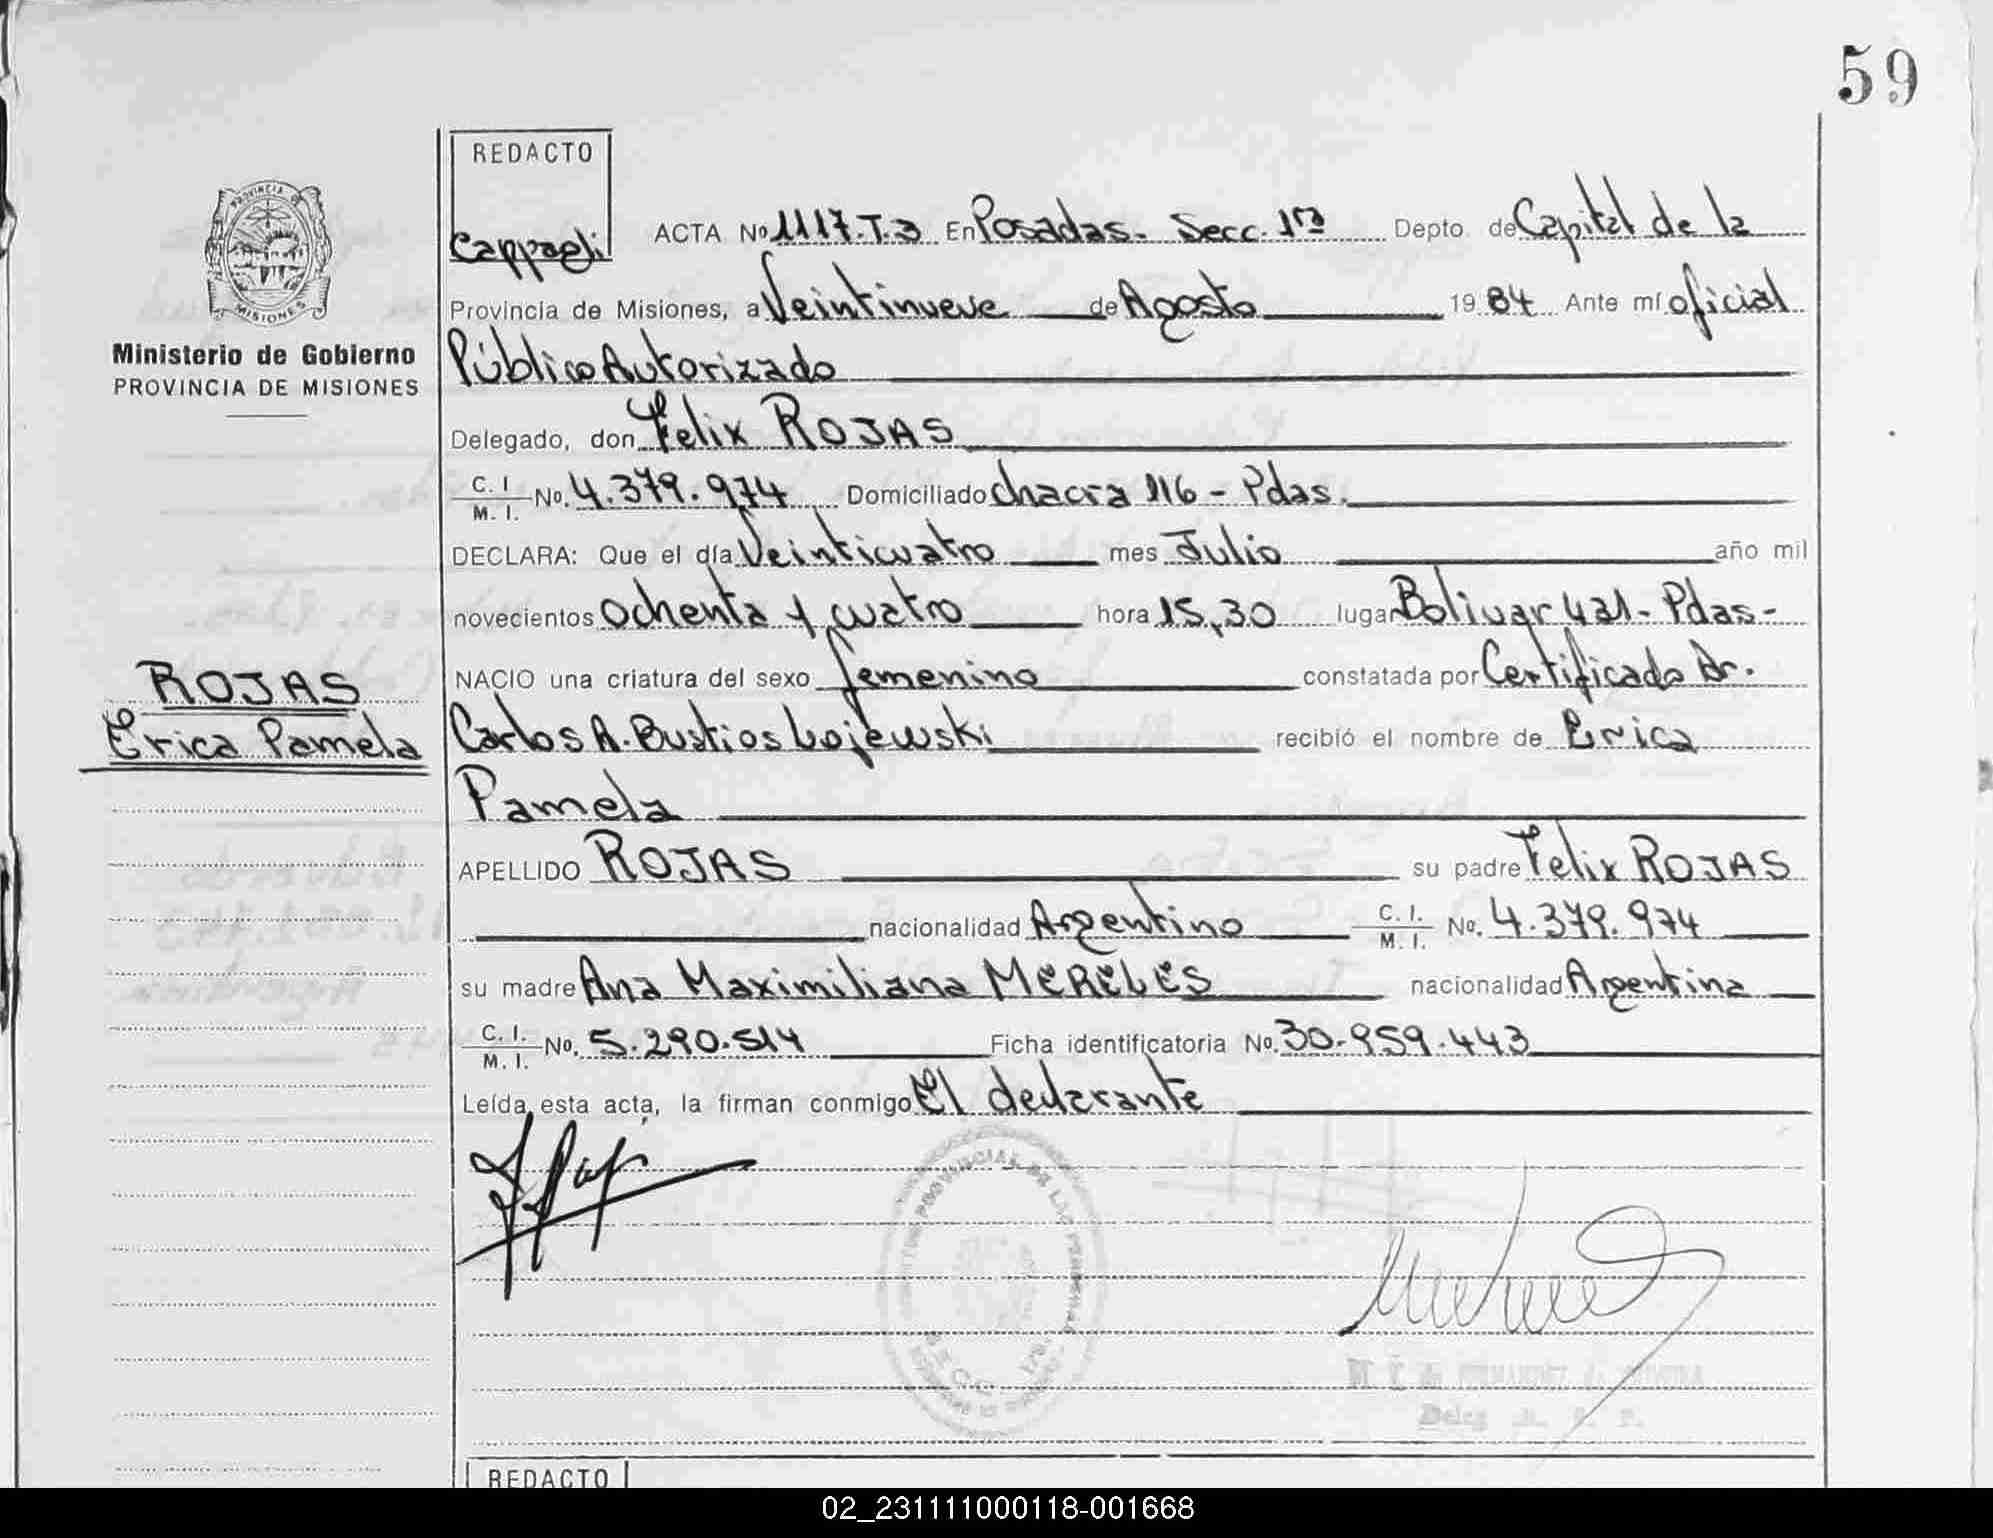 59
REDACTO
Cappagli
ACTA Nº 1117.T.3 En Posadas. Secc. 1ra Depto. de Capital de la
Provincia de Misiones, a Veintinueve de Agosto 1984 Ante mí oficial
Público Autorizado
Delegado, don Felix ROJAS
C. I. / M. I. No. 4.379.974 Domiciliado chacra 116 - Pdas.
DECLARA: Que el día Veinticuatro mes Julio año mil
novecientos ochenta y cuatro hora 15,30 lugar Bolivar 431 - Pdas -
NACIO una criatura del sexo femenino constatada por Certificado Dr.
Carlos A. Bustios Lojewski recibió el nombre de Erica
Pamela
APELLIDO ROJAS su padre Felix ROJAS
nacionalidad Argentino C. I. / M. I. No. 4.379.974
su madre Ana Maximiliana MERELES nacionalidad Argentina
C. I. / M. I. No. 5.290.514 Ficha identificatoria No. 30.959.443
Leída esta acta, la firman conmigo El declarante
PROVINCIA DE
MISIONES
Ministerio de Gobierno
PROVINCIA DE MISIONES
ROJAS
Erica Pamela
SECC. 1ra.
REDACTO
02_231111000118-001668